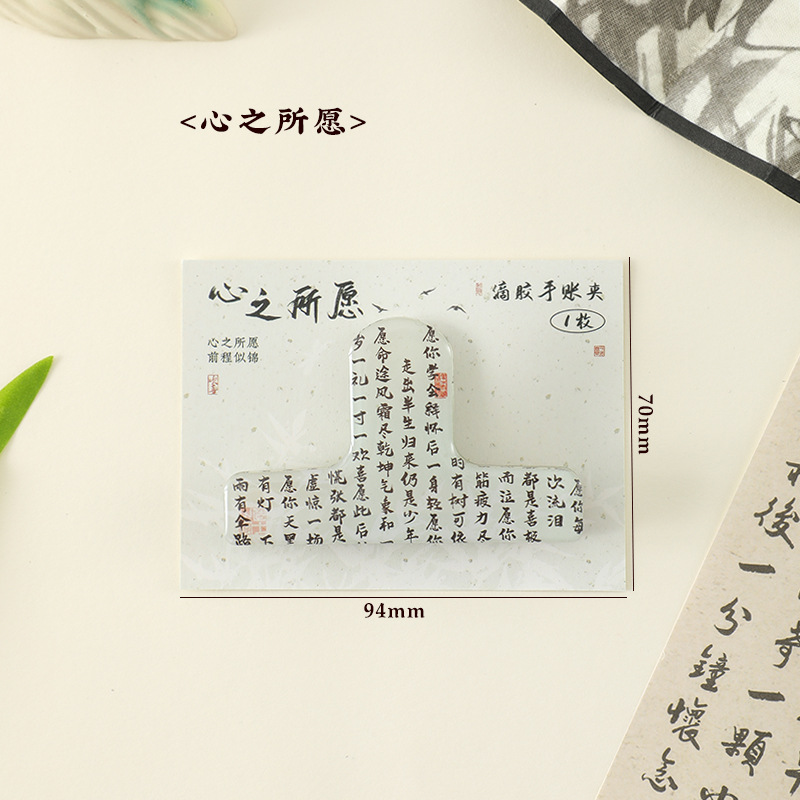 <心之所愿>
心之所愿
滴胶手账夹
1枚
心之所愿
前程似锦
愿你每
次流泪
都是喜极
而泣愿你
筋疲力尽
的有树可依
愿你学会释怀后一身轻愿你
走出半生归来仍是少年
愿命途风霜尽乾坤气象和一
岁一礼一寸一欢喜愿此后
慌张都是
虚惊一场
愿你天黑
有灯下
雨有伞路
70mm
94mm
一顆
後一分鐘懷念